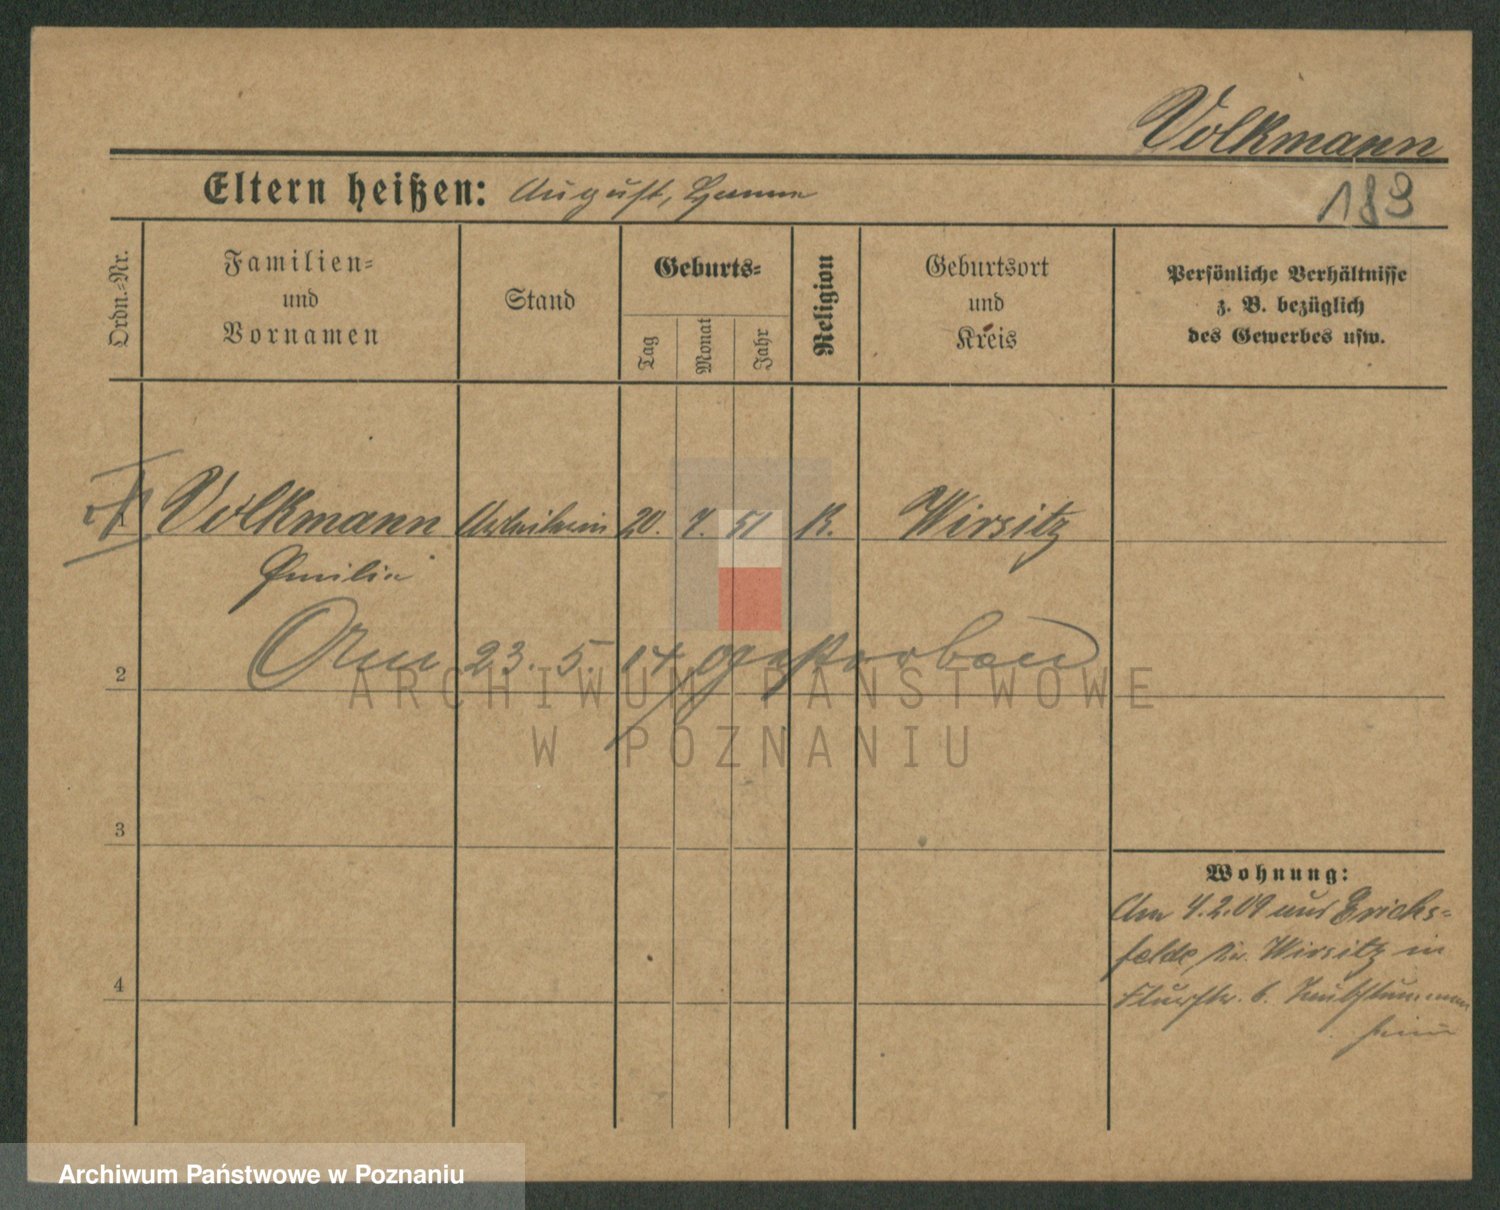 Volkmann
Eltern heißen: August, Hanne
183
Ordn.-Nr.
Familien-
und
Vornamen
Stand
Geburts-
Tag
Monat
Jahr
Religion
Geburtsort
und
Kreis
Persönliche Verhältnisse
z. B. bezüglich
des Gewerbes usw.
1 Volkmann Arbeiterin 20. 7. 51 K. Wirsitz
Emilie
Am 23. 5. 14 gestorben
2
ARCHIWUM PAŃSTWOWE
W POZNANIU
3
Wohnung:
Am 4.2.09 aus Erichs-
felde, Kr. Wirsitz in
Flurstr. 6. Taubstummen
heim
4
Archiwum Państwowe w Poznaniu